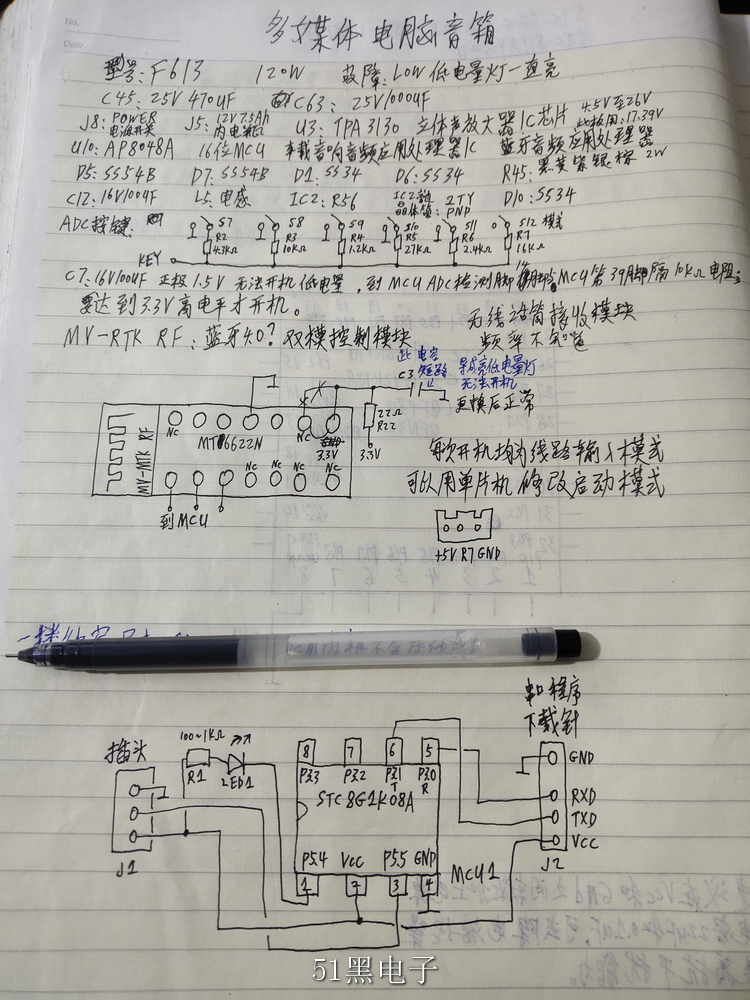 No.
Date.
多媒体电脑音箱
型号:F613 120W 故障:LOW低电量灯一直亮
C45:25V 470uF C63:25V100uF
J8:POWER电源开关 J5:12V7.5Ah内电瓶口 U3:TPA3130 立体声放大器IC芯片 4.5V至26V 此板用:17.39V
U10:AP8048A 16位MCU 车载音响音频应用处理器IC 蓝牙音频应用处理器
D5:SS54B D7:SS54B D1:SS34 D6:SS34 R45:黑黄紫银棕 2W
C12:16V100uF L5:电感 IC2:R56 2TY PNP D10:SS34
ADC按键: S7 S8 S9 S10 S11 S12 模式
R2 R3 R4 R5 R6 R7
4.3KΩ 10KΩ 1.2KΩ 27KΩ 2.4KΩ 16KΩ
KEY
C7:16V100uF 正极1.5V无法开机低电量,到MCU ADC检测脚 MCU第39脚隔10KΩ电阻;
要达到3.3V高电平才开机。
无线话筒接收模块
MV-RTK RF:蓝牙4.0?双模控制模块
频率不知道
此电容短路 导致亮低电量灯
无法开机
更换后正常
C3
22Ω
R22
3.3V
MV-MTK RF
NC NC
MT6622N
GND
3.3V
NC NC NC NC
到MCU
每次开机均为线路输入模式
可以用单片机修改启动模式
+5V R7 GND
串口程序
下载针
插头
100~1KΩ
R1
LED1
J1
8 7 6 5
P3.3 P3.2 P3.1 P3.0
T R
STC8G1K08A
P5.4 VCC P5.5 GND
1 2 3 4
MCU1
GND
RXD
TXD
VCC
J2
51黑电子